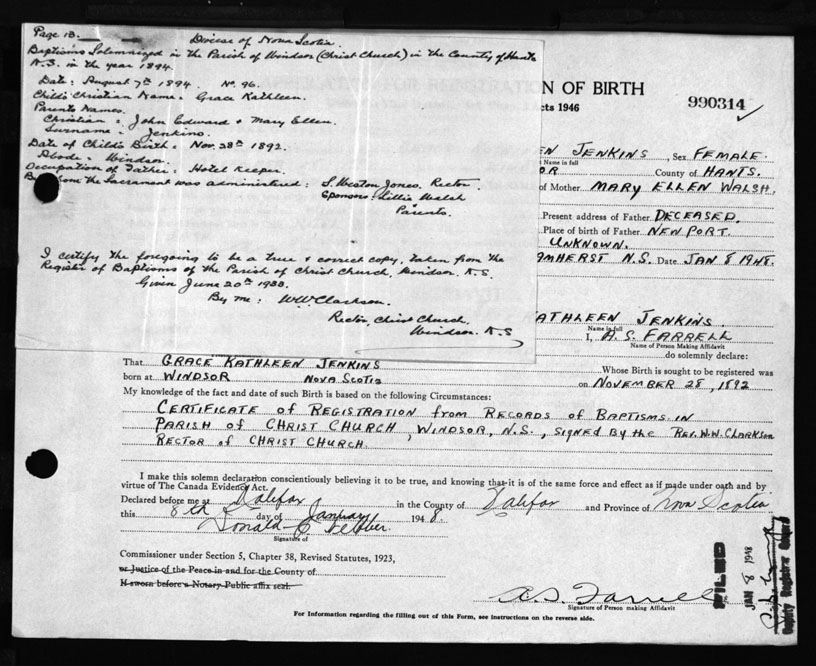 Page 13.
Diocese of Nova Scotia.
Baptisms Solemnized in the Parish of Windsor (Christ Church) in the County of Hants
N.S. in the year 1894.
Date: August 7th 1894. No. 96.
Child's Christian Name: Grace Kathleen.
Parents Names.
Christian: John Edward + Mary Ellen.
Surname: Jenkins.
Date of Child's Birth: Nov. 28th 1892.
Abode: Windsor.
Occupation of Father: Hotel Keeper.
By whom the Sacrament was administered: S. Weston Jones. Rector
Sponsors: Lillie Walsh
Parents.
I certify the foregoing to be a true + correct copy, taken from the
Register of Baptisms of the Parish of Christ Church, Windsor. N.S.
Given June 20th 1933.
By me: W W Clarkson.
Rector, Christ Church.
Windsor. N.S
N OF BIRTH
cts 1946
990314
EN JENKINS, Sex FEMALE.
Name in full
OR County of HANTS.
of Mother MARY ELLEN WALSH.
Present address of Father DECEASED.
Place of birth of Father NEWPORT.
UNKNOWN.
AMHERST N.S. Date JAN 8 1948.
ATHLEEN JENKINS.
Name in full
I, A. S. FARRELL
Name of Person Making Affidavit
do solemnly declare:
That GRACE KATHLEEN JENKINS
Whose Birth is sought to be registered was
born at WINDSOR NOVA SCOTIA on NOVEMBER 28, 1892
My knowledge of the fact and date of such Birth is based on the following Circumstances:
CERTIFICATE OF REGISTRATION FROM RECORDS OF BAPTISMS IN
PARISH OF CHRIST CHURCH, WINDSOR, N.S., SIGNED BY the REV. W.W. CLARKSON
RECTOR OF CHRIST CHURCH.
I make this solemn declaration conscientiously believing it to be true, and knowing that it is of the same force and effect as if made under oath and by
virtue of The Canada Evidence Act.
Declared before me at Halifax in the County of Halifax and Province of Nova Scotia
this 8th day of January 1948.
Donald C Webber
Signature of
Commissioner under Section 5, Chapter 38, Revised Statutes, 1923,
or Justice of the Peace in and for the County of
If sworn before a Notary Public affix seal.
A. S. Farrell
Signature of Person making Affidavit
For Information regarding the filling out of this Form, see instructions on the reverse side.
FILED
JAN 8 1948
Deputy Registrar General